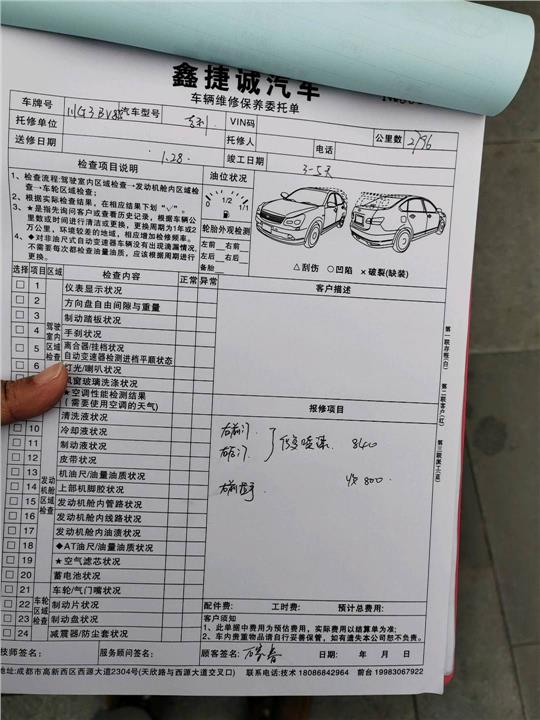 鑫捷诚汽车
车辆维修保养委托单
车牌号 川G3BV 汽车型号 吉利 VIN码 公里数 2796
托修单位 托修人 电话
送修日期 1.28. 竣工日期 3-5天
检查项目说明 油位状况
1、检查流程:驾驶室内区域检查→发动机舱内区域检
查→车轮区域检查;
2、根据实际检查结果,在相应结果下划“√”。
3、★是指先询问客户或查看历史记录,根据车辆公
里数或时间进行清洁或更换,更换周期为1年或2
万公里,环境较差的地域,相应增加检修频率。
4、◆对非油尺式自动变速器车辆没有出现渗漏情况,
不需要每次都检查油量油质,应该根据周期进行
更换。
0 1/2 1/1
轮胎外观检测
左前 右前
左后 右后
备胎
△刮伤 ○凹陷 ×破裂(缺装)
选择 项目 区域 检查内容 正常 异常 客户描述
驾驶室内区域检查
1 仪表显示状况
2 方向盘自由间隙与重量
3 制动踏板状况
4 手刹状况
5 离合器/挂档状况
自动变速器检测进档平顺状态
6 灯光/喇叭状况
风窗玻璃洗涤状况
★空调性能检测结果
(需要使用空调的天气)
报修项目
清洗液状况
10 冷却液状况
11 制动液状况
12 皮带状况
13 机油尺/油量油质状况
14 上部机脚胶状况
15 发动机舱内管路状况
16 发动机舱内线路状况
17 发动机舱内油渍状况
18 ◆AT油尺/油量油质状况
19 ★空气滤芯状况
20 蓄电池状况
21 车轮/气门嘴状况
22 制动片状况
23 制动盘状况
24 减震器/防尘套状况
发动机舱区域检查
车轮区域检查
右前门
右后门 喷漆 840
右前 收800
配件费: 工时费: 预计总费用:
客户须知
1、此单据中费用为预估费用,实际费用以结算单为准;
2、车内贵重物品请自行妥善保管,如有遗失本公司恕不负责。
技师签名: 服务顾问签名: 顾客签名: 日期: 年 月 日
地址:成都市高新西区西源大道2304号(天欣路与西源大道交叉口) 联系电话:技术 18086842964 前台 19983067922
第一联存根(白)
第二联客户(红)
第三联派工(蓝)